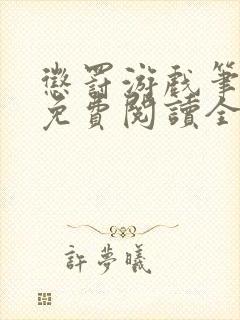 懲罰游戲筆
免費閱讀全
許夢曦